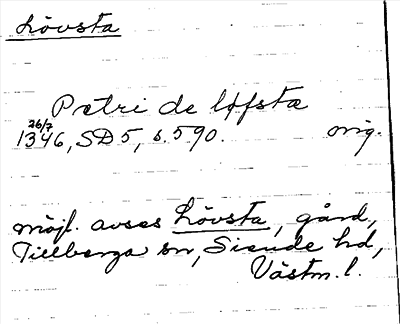 Lövsta
Petri de løfsta
26/7
1346, SD 5, s. 590. orig.
möjl. avses Lövsta, gård,
Tillberga sn, Siende hd,
Västm. l.